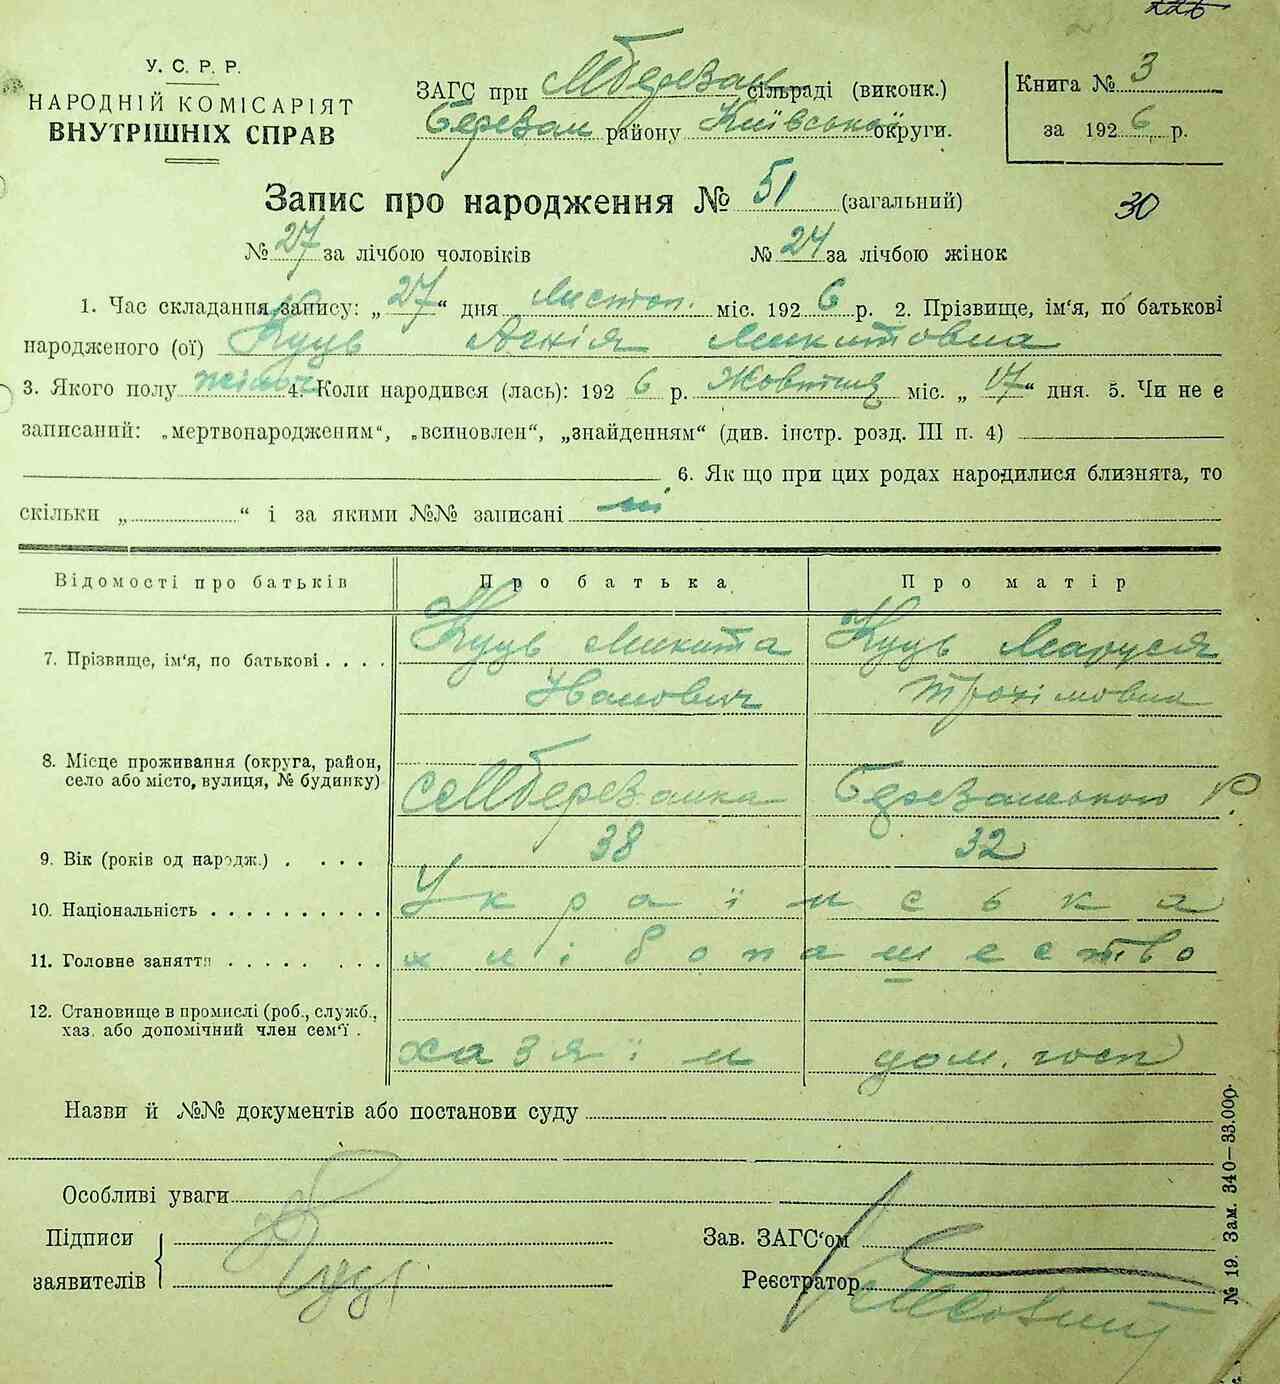 226
У. С. Р. Р.
НАРОДНІЙ КОМІСАРІЯТ
ВНУТРІШНІХ СПРАВ
ЗАГС при МБерезан сільраді (виконк.)
Березан району Київської округи.
Книга № 3
за 1926 р.
Запис про народження № 51 (загальний)
30
№ 27 за лічбою чоловіків № 24 за лічбою жінок
1. Час складання запису: „27“ дня Листоп. міс. 1926 р. 2. Прізвище, ім‘я, по батькові
народженого (ої) Куць Микитовна
3. Якого полу жіноч 4. Коли народився (лась): 1926 р. Жовтня міс. „17“ дня. 5. Чи не є
записаний: „мертвонародженим“, „всиновлен“, „знайденням“ (див. інстр. розд. III п. 4)
6. Як що при цих родах народилися близнята, то
скільки „ “ і за якими №№ записані ні
Відомості про батьків Про батька Про матір
7. Прізвище, ім‘я, по батькові . . . . Куць Микита Куць Маруся
Іванович Трохімовна
8. Місце проживання (округа, район,
село або місто, вулиця, № будинку) с МБерезанка Березанського Р.
9. Вік (років од народж.) . . . . 38 32
10. Національність . . . . . . . . . . Українська
11. Головне заняття . . . . . . . . . хлібопашество
12. Становище в промислі (роб., служб.,
хаз. або допомічний член сем‘ї . хазяїн дом. госп
Назви й №№ документів або постанови суду
Особливі уваги
Підписи
заявителів Куць
Зав. ЗАГС‘ом
Реєстратор
№ 19. Зам. 340—33.000.